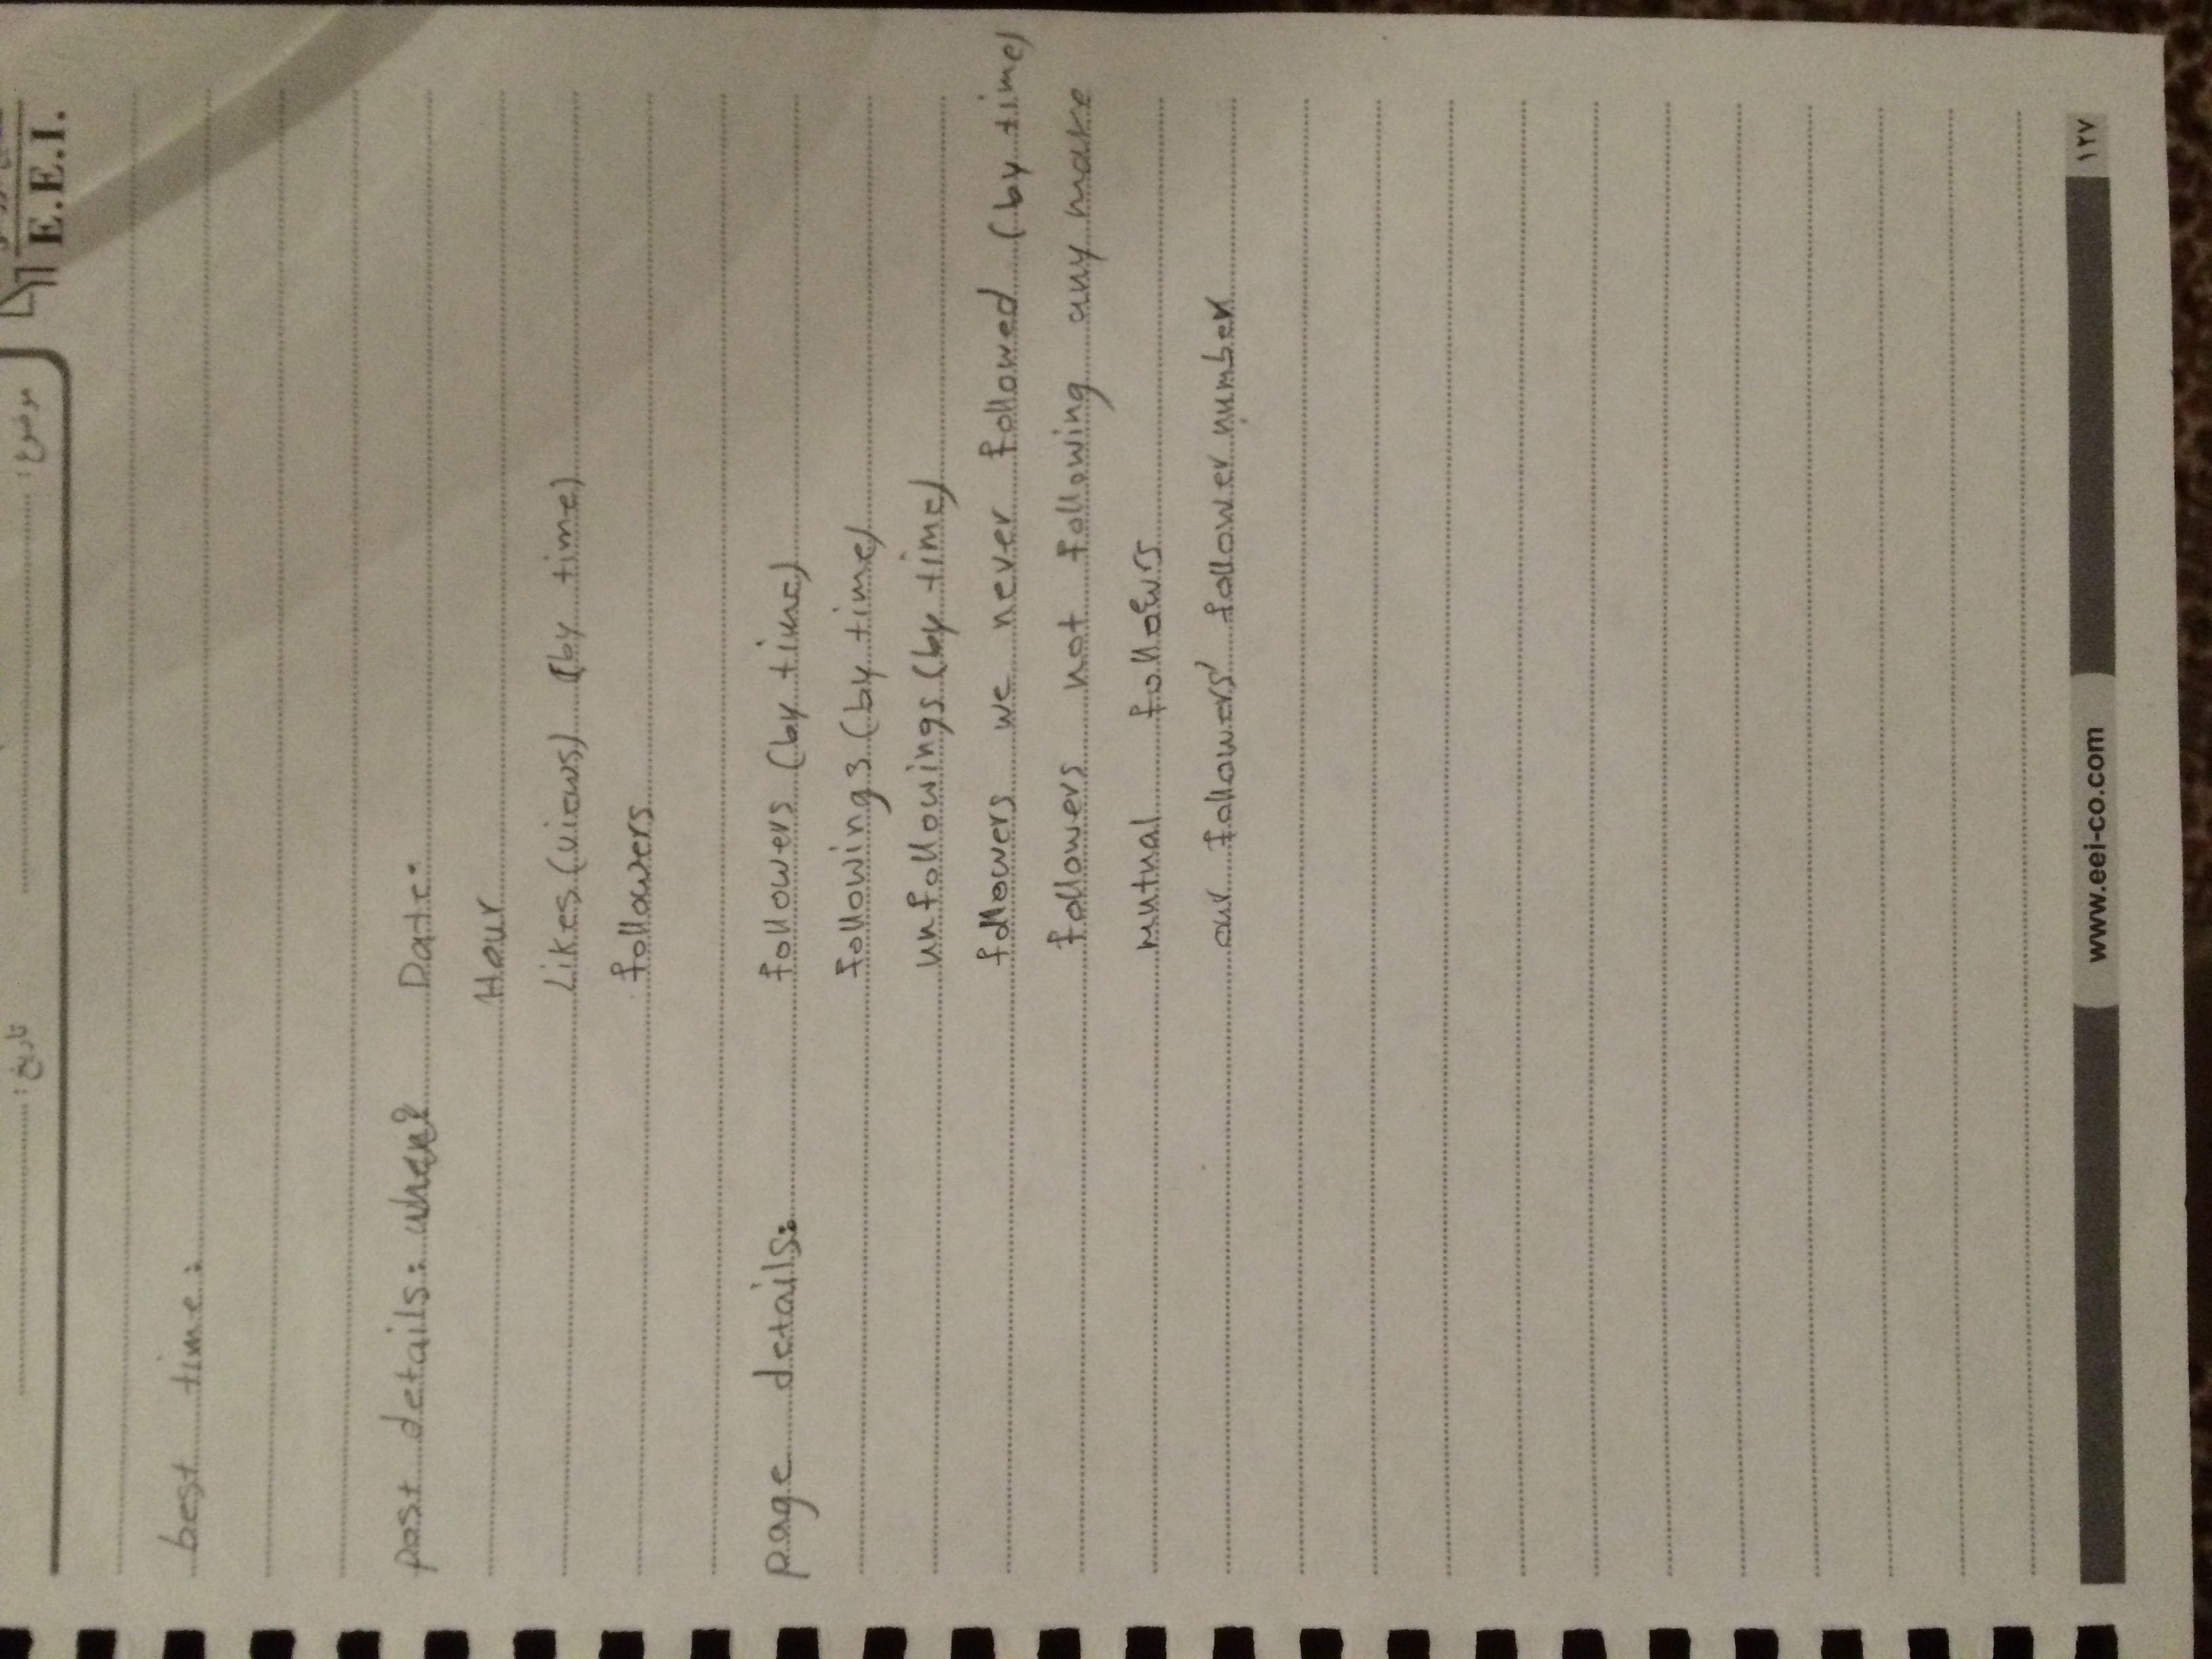 موضوع : تاریخ :
E.E.I.
best time:
post details: when? Date:
Hour
Likes (views) (by time)
followers
page details: followers (by time)
followings (by time)
unfollowings (by time)
followers we never followed (by time)
followers not following any more
mutual
our followers' follower number
www.eei-co.com
۱۲۷